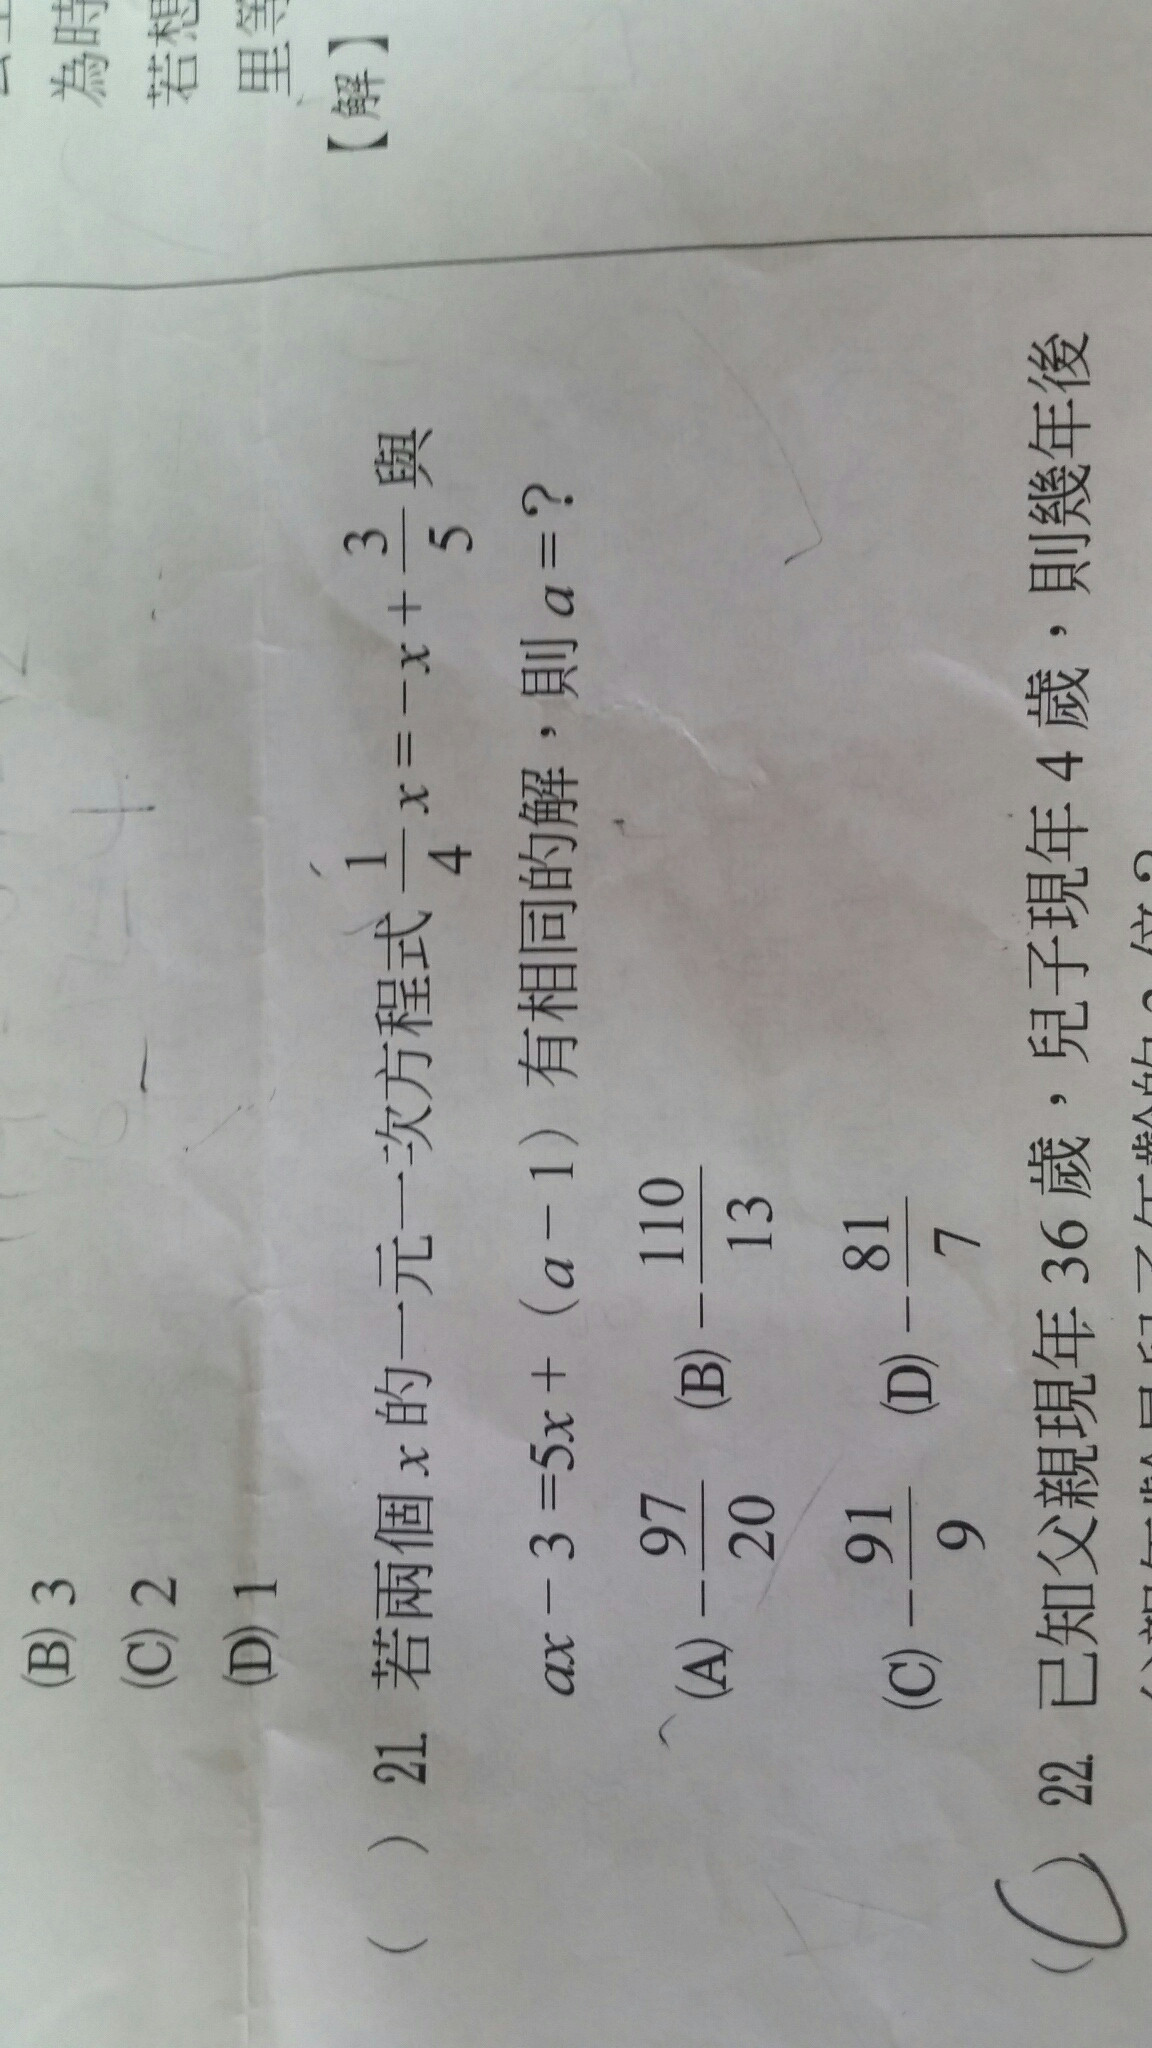 為時
若想
里等
【解】
(B) 3
(C) 2
(D) 1
( ) 21. 若兩個 x 的一元一次方程式 1/4 x = -x + 3/5 與
ax - 3 = 5x + (a - 1) 有相同的解，則 a = ?
(A) - 97/20 (B) - 110/13
(C) - 91/9 (D) - 81/7
( ) 22. 已知父親現年 36 歲，兒子現年 4 歲，則幾年後